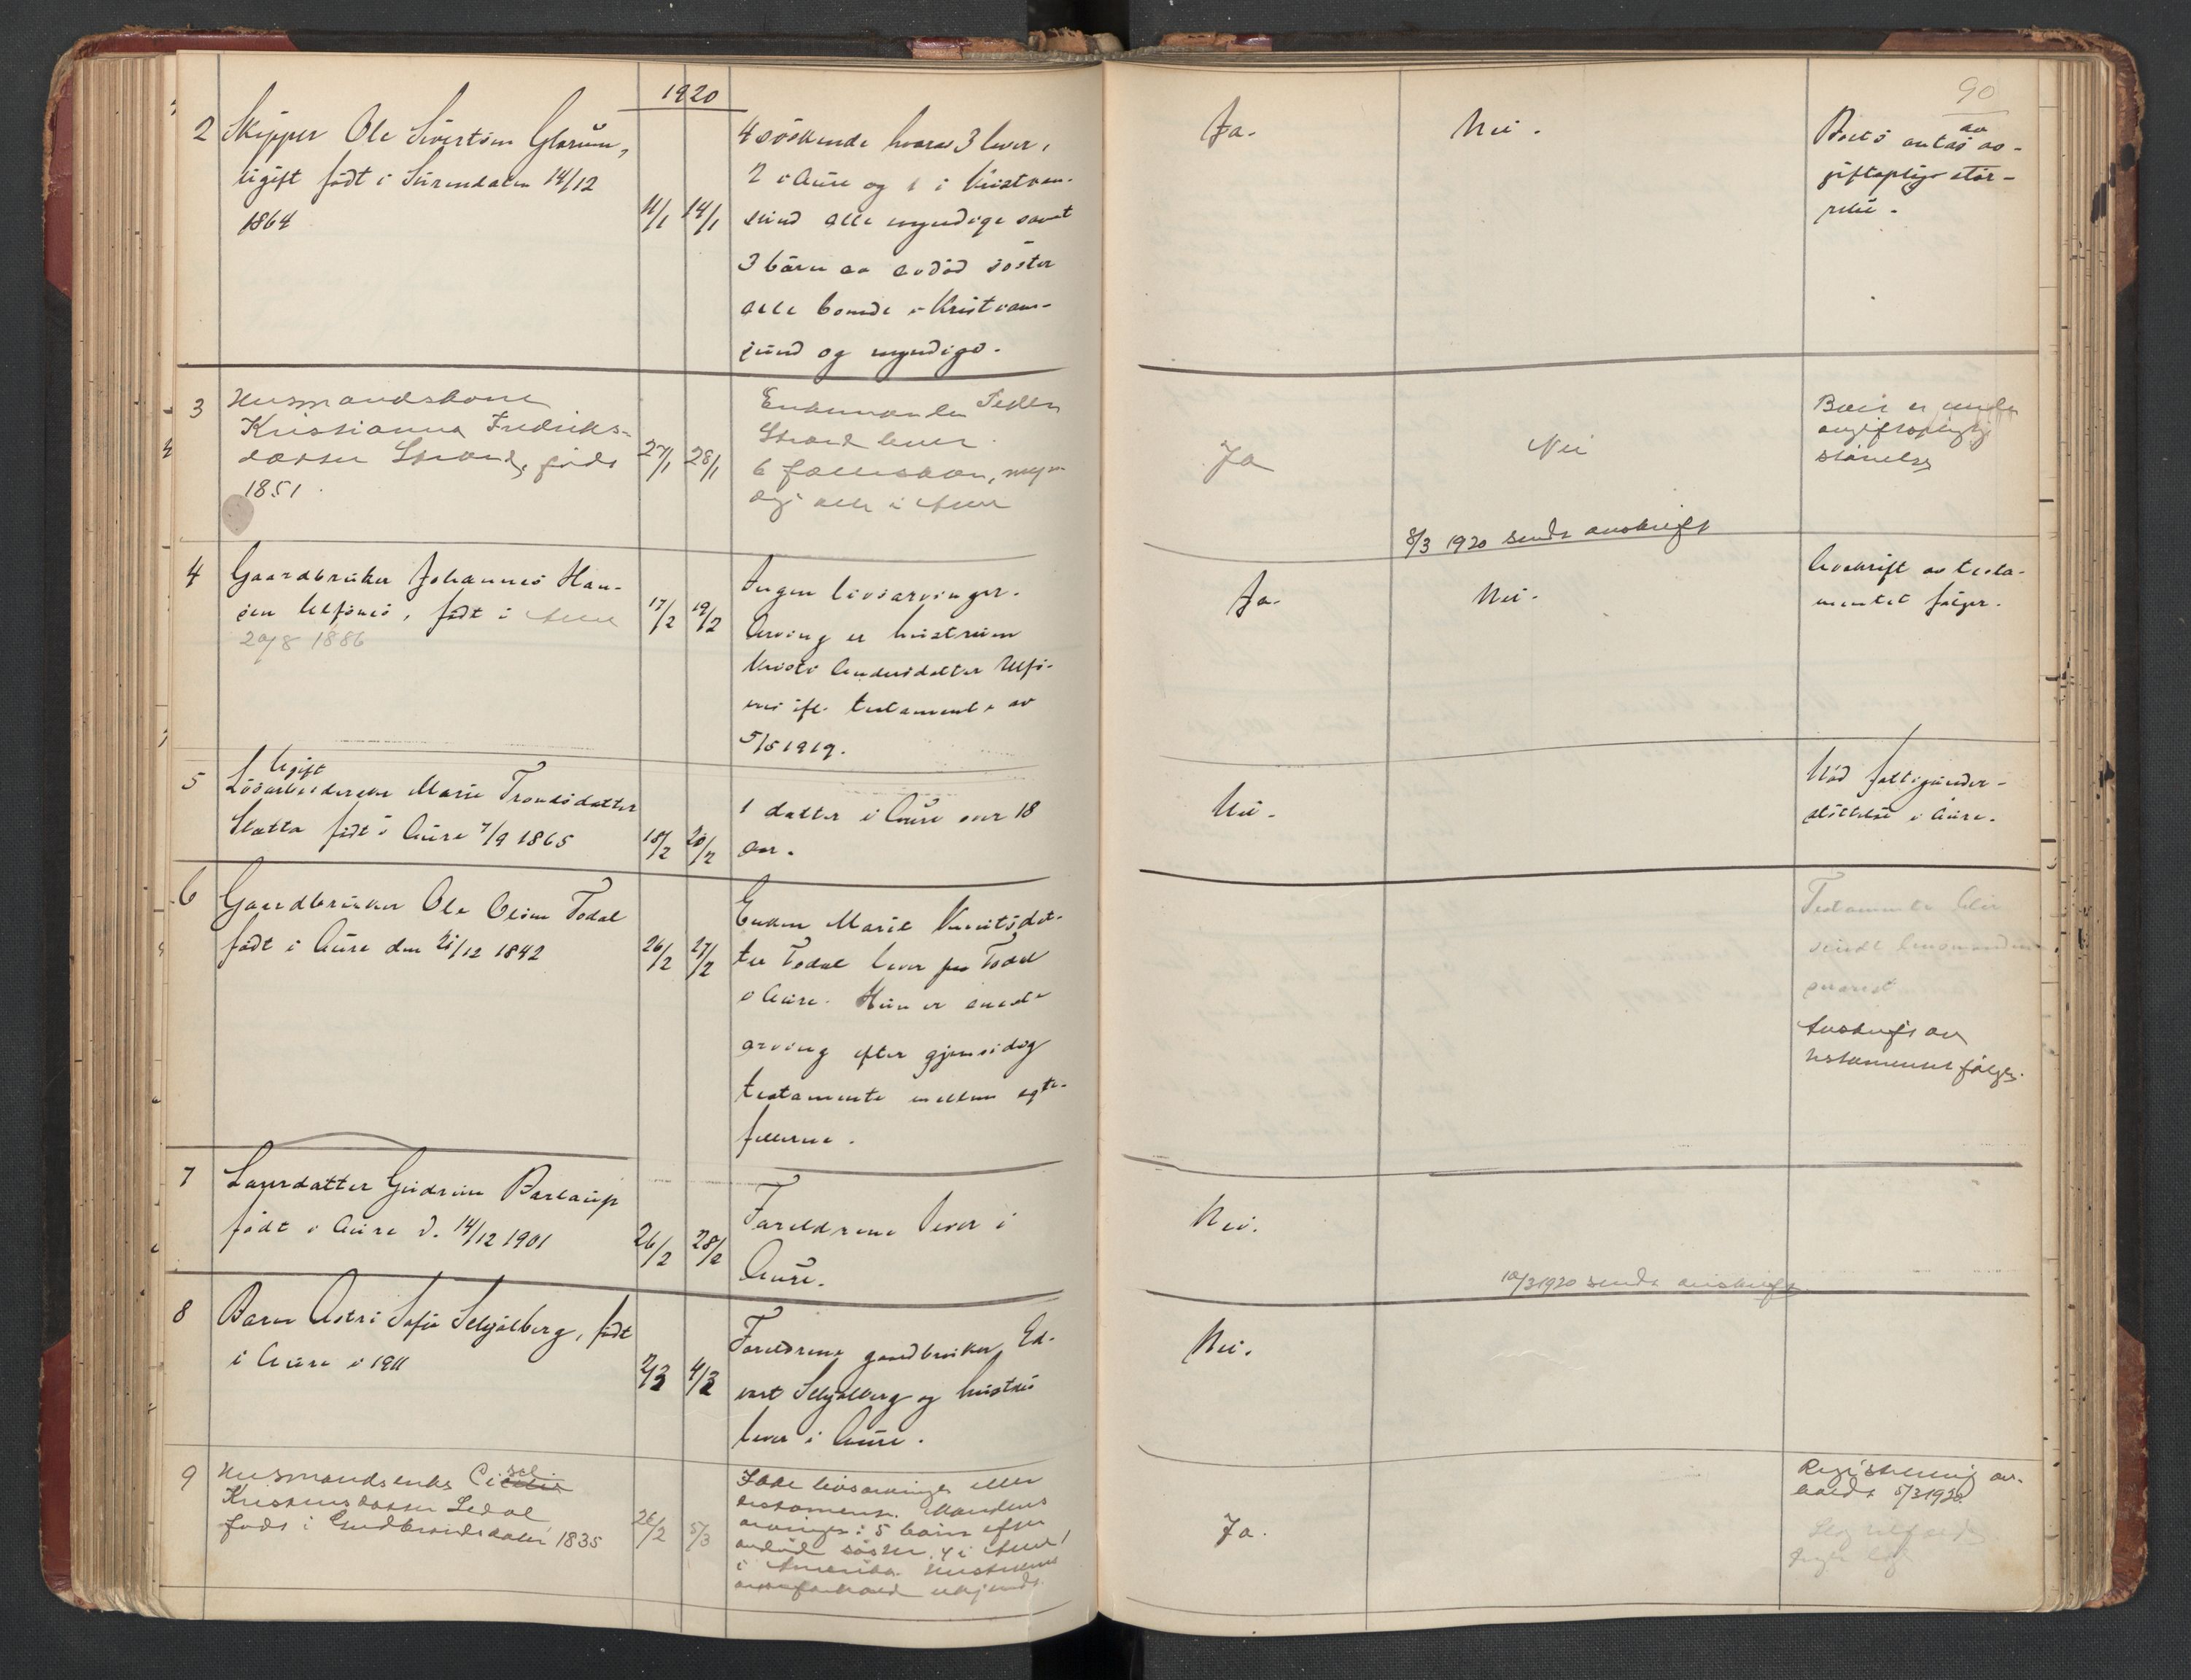 1920
90
2 Skipper Ole Sivertsen Glærum,
ugift født i Surendalen 14/12
1864
11/1 14/1
4 söskende hvorav 3 lever,
2 i Aure og 1 i Kristian-
sund alle myndige samt
3 börn av avdöd söster
alle boende i Kristian-
sund og myndige.
Ja. Nei.
Boets antas av
av-
giftspligt stør-
relse.
3 Husmandskone
Kristianna Fredriks-
datter Strand, föds
1851.
27/1 28/1
Enkemanden Peder
Strand lever.
6 fællesbarn, myn-
dige alle i Aure
Ja Nei
Boet er under
avgiftspligtig
størrelse
8/3 1920 sendt avskrift
4 Gaardbruker Johannes Han-
sen Ulfsnes, født i Aure
20/8 1886
17/2 19/2
Ingen livsarvinger.
Arving er hustruen
Kristi Andersdatter Ulfs-
nes ifl. testamente av
5/5 1919.
Ja. Nei.
Avskrift av testa-
mentet følger.
5 Ugift
Lösarbeiderske Marie Trondsdatter
Slatta født i Aure 7/9 1865
18/2 20/2
1 datter i Aure over 18
aar.
Nei.
Nöd fattigunder-
støttelse i Aure.
6 Gaardbruker Ole Olsen Todal
født i Aure den 21/12 1842
26/2 27/2
Enken Marit Knutsdat-
ter Todal lever paa Todal
i Aure. Hun er eneste
arving efter gjensidig
testamente mellem egte-
fellerne.
Testamente blir
sendt lensmanden
snarest
Avskrift av
testamentet følger.
7 Laursdatter Gudrun Barlaup
født i Aure d. 14/12 1901
26/2 28/2
Foreldrene lever i
Aure.
Nei.
10/3 1920 sendt avskrift
8 Barn Astri Sofie Selgjelberg, født
i Aure i 1911
2/3 4/3
Foreldrene gaardbruker Ed-
vart Selgjelberg og hustru
lever i Aure.
Nei.
9 Husmandsenke Cicelie
sel
Kristensdatter Ledal
født i Gudbrandsdalen 1835
26/2 5/3
Ikke livsarvinger eller
testament. Mandens
arvinger: 5 barn efter
avdöd söster. 4 i Aure, 1
i Amerika. Hustruens
arveforhold ukjendt.
Ja.
Registrering av-
holdt 5/3 1920.